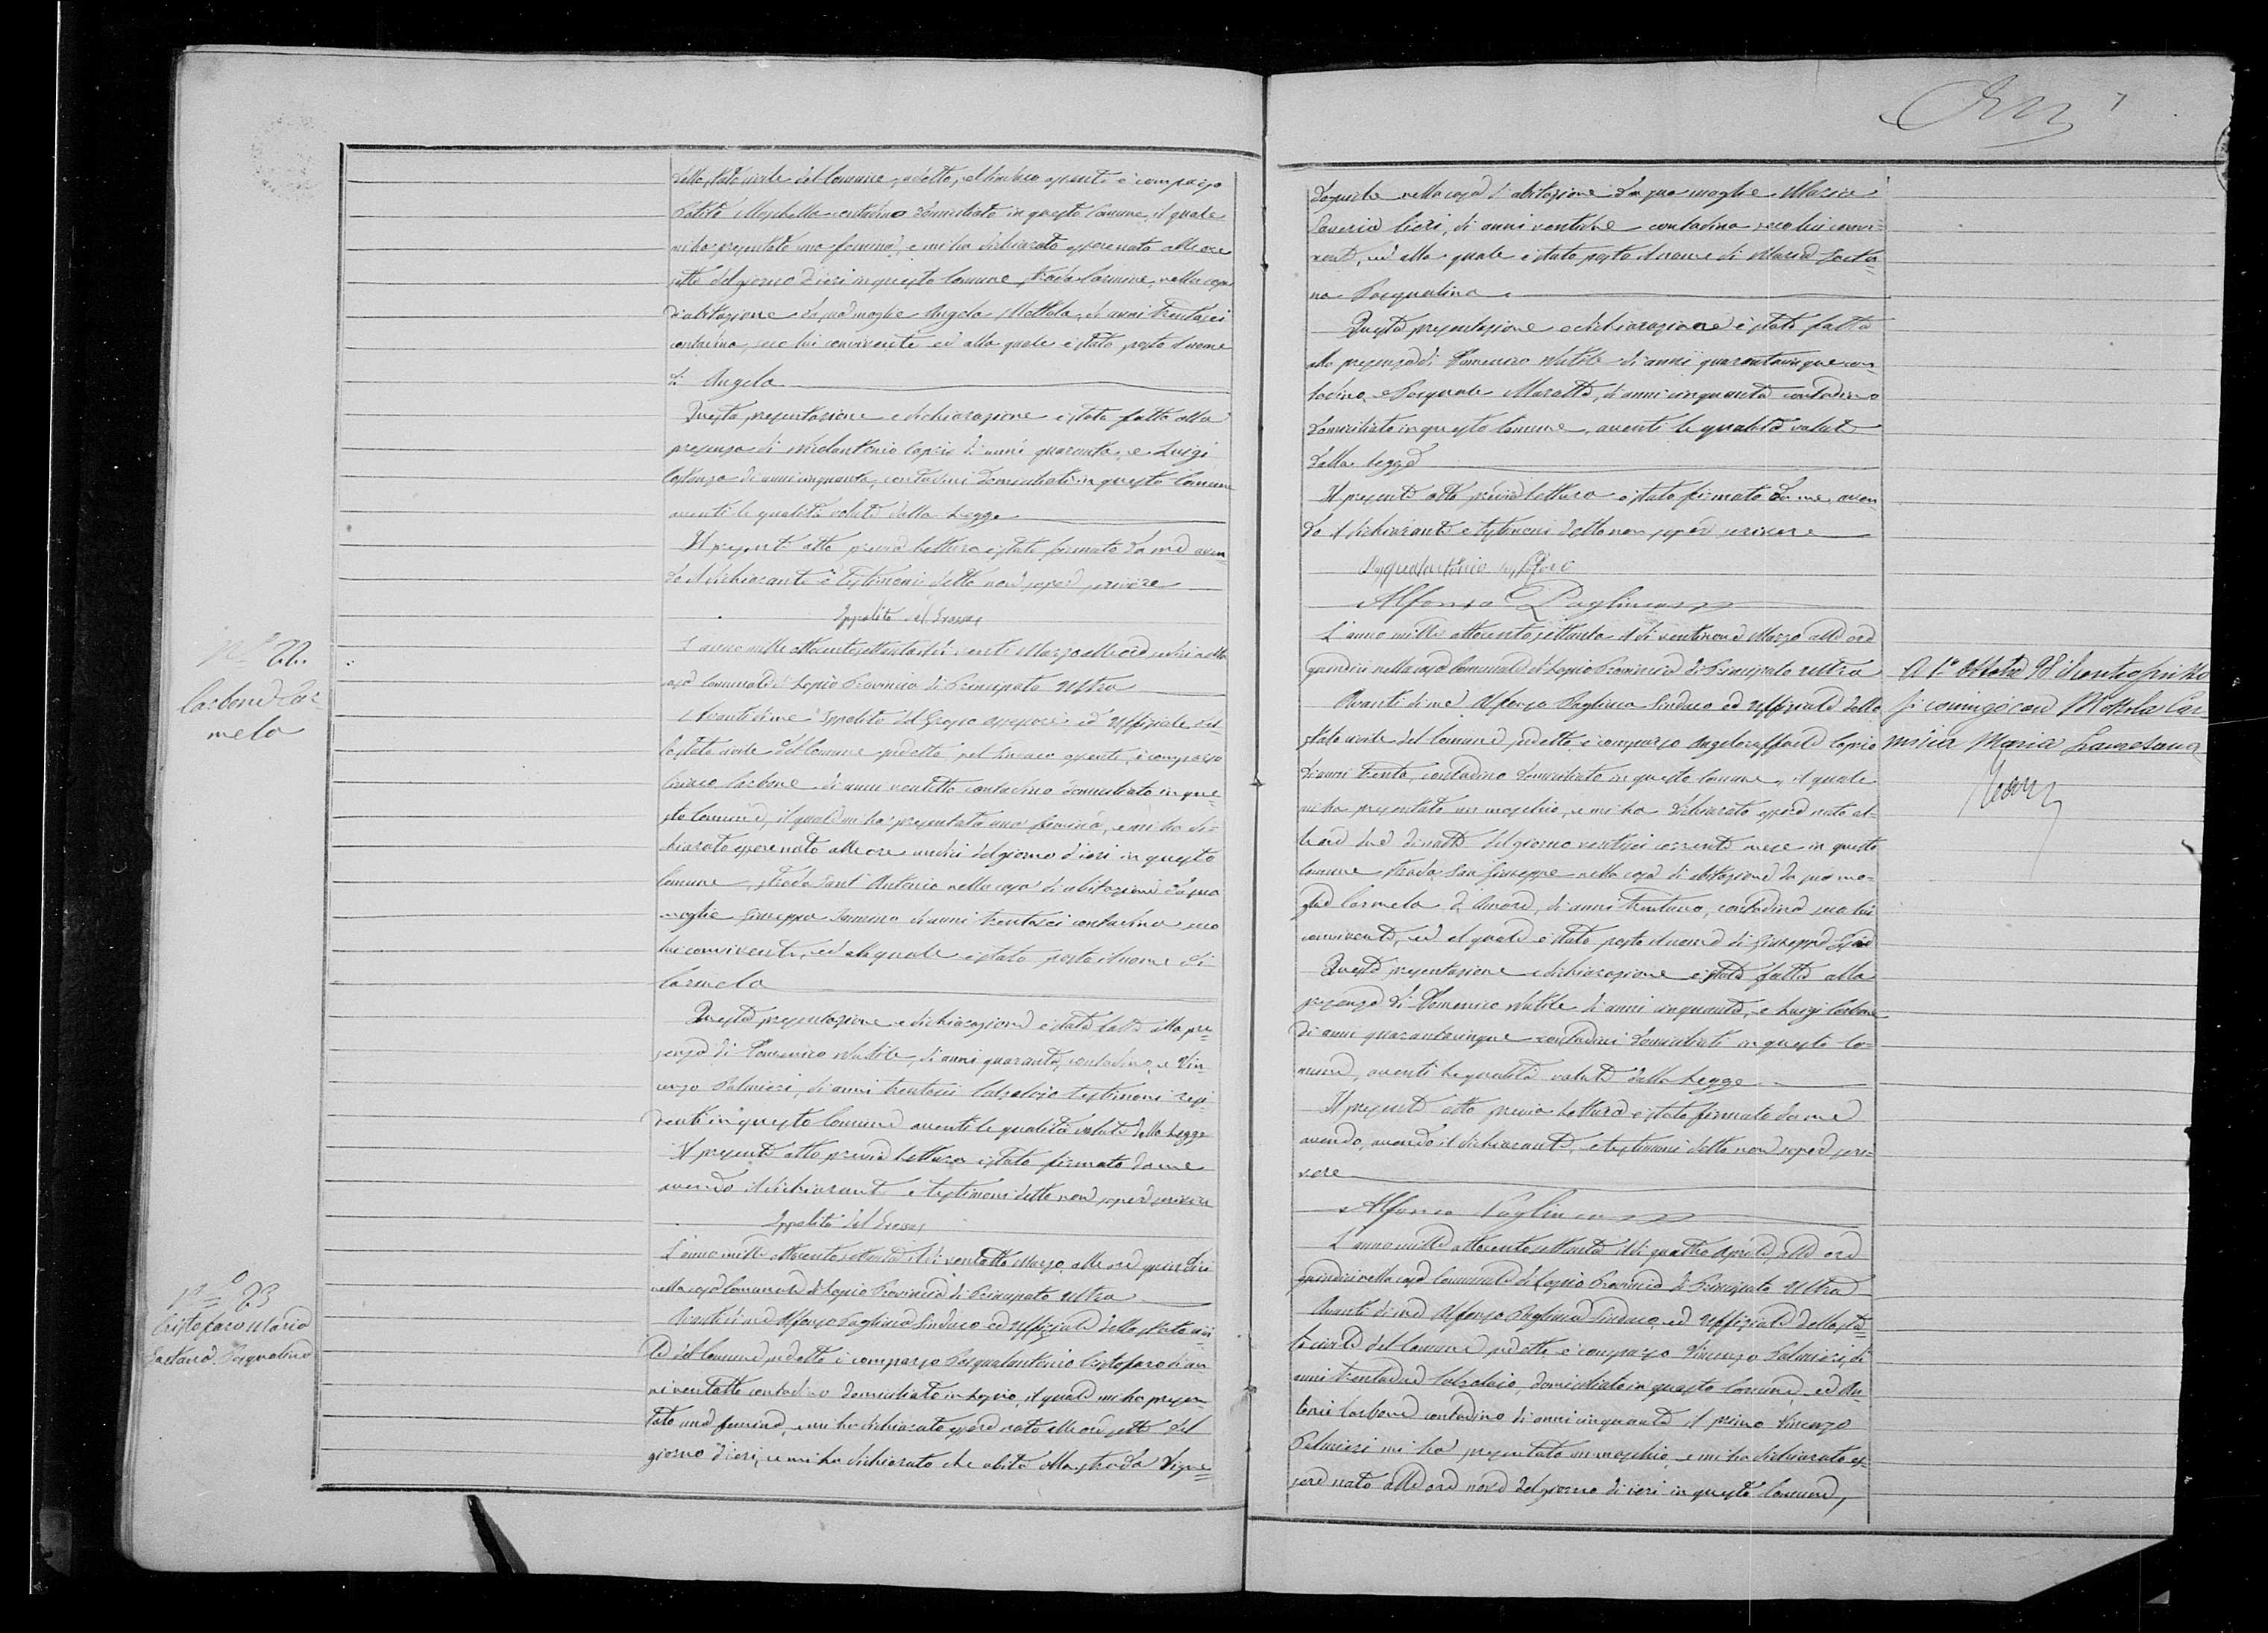 dello stato civile del Comune sudetto, el Sindaco assente è comparso
contadino domiciliato in questo Comune, il quale
mi ha presentato una femina, e mi ha dichiarato essere nata alle ore
sette del giorno d'ieri in questo Comune, strada Carmine, nella casa
d'abitazione da sua moglie Angela Mottola, di anni trentasei
contadina, seco lui convivente ed alla quale è stato posto il nome
di Angela
Questa presentazione e dichiarazione è stata fatta alla
presenza di Capio di anni quaranta, e Luigi
di anni cinquanta, contadini domiciliati in questo Comune
aventi le qualità volute dalla Legge
Il presente atto previa lettura è stato firmato da me aven
do il dichiarante e testimoni detto non saper scrivere
Ippolito del Grosso
N° 22.
Carbone Car=
mela
L'anno mille ottocentosettanta il dì venti Marzo alle ore undici nella
casa Comunale di Lapio Provincia di Principato Ultra
Avanti di me Ippolito del Grosso assessore ed Uffiziale del=
lo stato civile del Comune sudetto, pel Sindaco assente, è comparso
Ciriaco Carbone di anni ventotto contadino domiciliato in que=
sto Comune, il quale mi ha presentata una femina, e mi ha di=
chiarato essere nata alle ore undici del giorno d'ieri in questo
Comune, strada Sant'Antonio nella casa di abitazione da sua
moglie Giuseppa Iannino di anni trentasei contadina seco
lui convivente, ed alla quale è stato posto il nome di
Carmela
Questa presentazione e dichiarazione è stata fatta alla pre=
senza di Domenico Nutile, di anni quaranta, contadino, e Vin=
cenzo Palmieri, di anni trentasei Calzolajo testimoni resi=
denti in questo Comune aventi le qualità volute dalla Legge
Il presente atto previa lettura è stato firmato da me
avendo il dichiarante e testimoni detto non saper scrivere
Ippolito del Grosso
N° 23
Cristofaro Maria
Gaetana Pasqualina
L'anno mille ottocentosettanta il dì ventotto Marzo, alle ore quindici
nella casa Comunale di Lapio Provincia di Principato Ultra
Avanti di me Alfonso Pagliuca Sindaco ed Uffiziale dello stato civi
le del Comune sudetto è comparso Pasqualantonio Cristofaro di an
ni ventotto contadino domiciliato in Lapio, il quale mi ha presen=
tato una femina, e mi ha dichiarato essere nata alle ore sette del
giorno d'ieri, e mi ha dichiarato che abita alla strada Vigne=
nella casa d'abitazione da sua moglie Maria
Saveria Cieri, di anni ventitre contadina seco lui convi=
vente, ed alla quale è stato posto il nome di Maria Gaeta=
na Pasqualina
Questa presentazione e dichiarazione è stata fatta
alla presenza di Domenico Nutile di anni quarantacinque con=
tadino e Pasquale Marotta, di anni cinquanta contadino
domiciliato in questo Comune, aventi le qualità volute
dalla legge
Il presente atto previa lettura è stato firmato da me, aven=
do il dichiarante e testimoni detto non saper scrivere
Alfonso Pagliuca
L'anno mille ottocentosettanta il dì ventinove Marzo alle ore
quindici nella casa Comunale di Lapio Provincia di Principato Ultra
Avanti di me Alfonso Pagliuca Sindaco ed Uffiziale dello
stato civile del Comune sudetto è comparso Angeloraffaele Capio
di anni trenta, contadino domiciliato in questo Comune, il quale
mi ha presentato un maschio, e mi ha dichiarato essere nato al=
le ore due di notte del giorno ventisei corrente mese in questo
Comune strada San Giuseppe nella casa di abitazione da sua mo=
glie Carmela d'Amore, di anni trentuno, contadina seco lui
convivente, ed al quale è stato posto il nome di Giuseppe
Questa presentazione e dichiarazione è stata fatta alla
presenza di Domenico Nutile di anni cinquanta, e Luigi Carbone
di anni quarantacinque contadini domiciliati in questo Co=
mune, aventi le qualità volute dalla Legge
Il presente atto previa lettura è stato firmato da me
avendo, avendo il dichiarante, e testimoni detto non saper scri=
vere
Alfonso Pagliuca
si coniugò con Mottola Car
Maria
L'anno mille ottocentosettanta il dì quattro Aprile, alle ore
quindici nella casa Comunale di Lapio Provincia di Principato Ultra
Avanti di me Alfonso Pagliuca Sindaco, ed Uffiziale dello sta=
to civile del Comune sudetto è comparso Vincenzo Palmieri, di
anni trentadue Calzolaio, domiciliato in questo Comune, ed An=
tonio Carbone contadino di anni cinquanta il primo Vincenzo
Palmieri mi ha presentato un maschio, e mi ha dichiarato es=
sere nato alle ore nove del giorno di ieri in questo Comune,